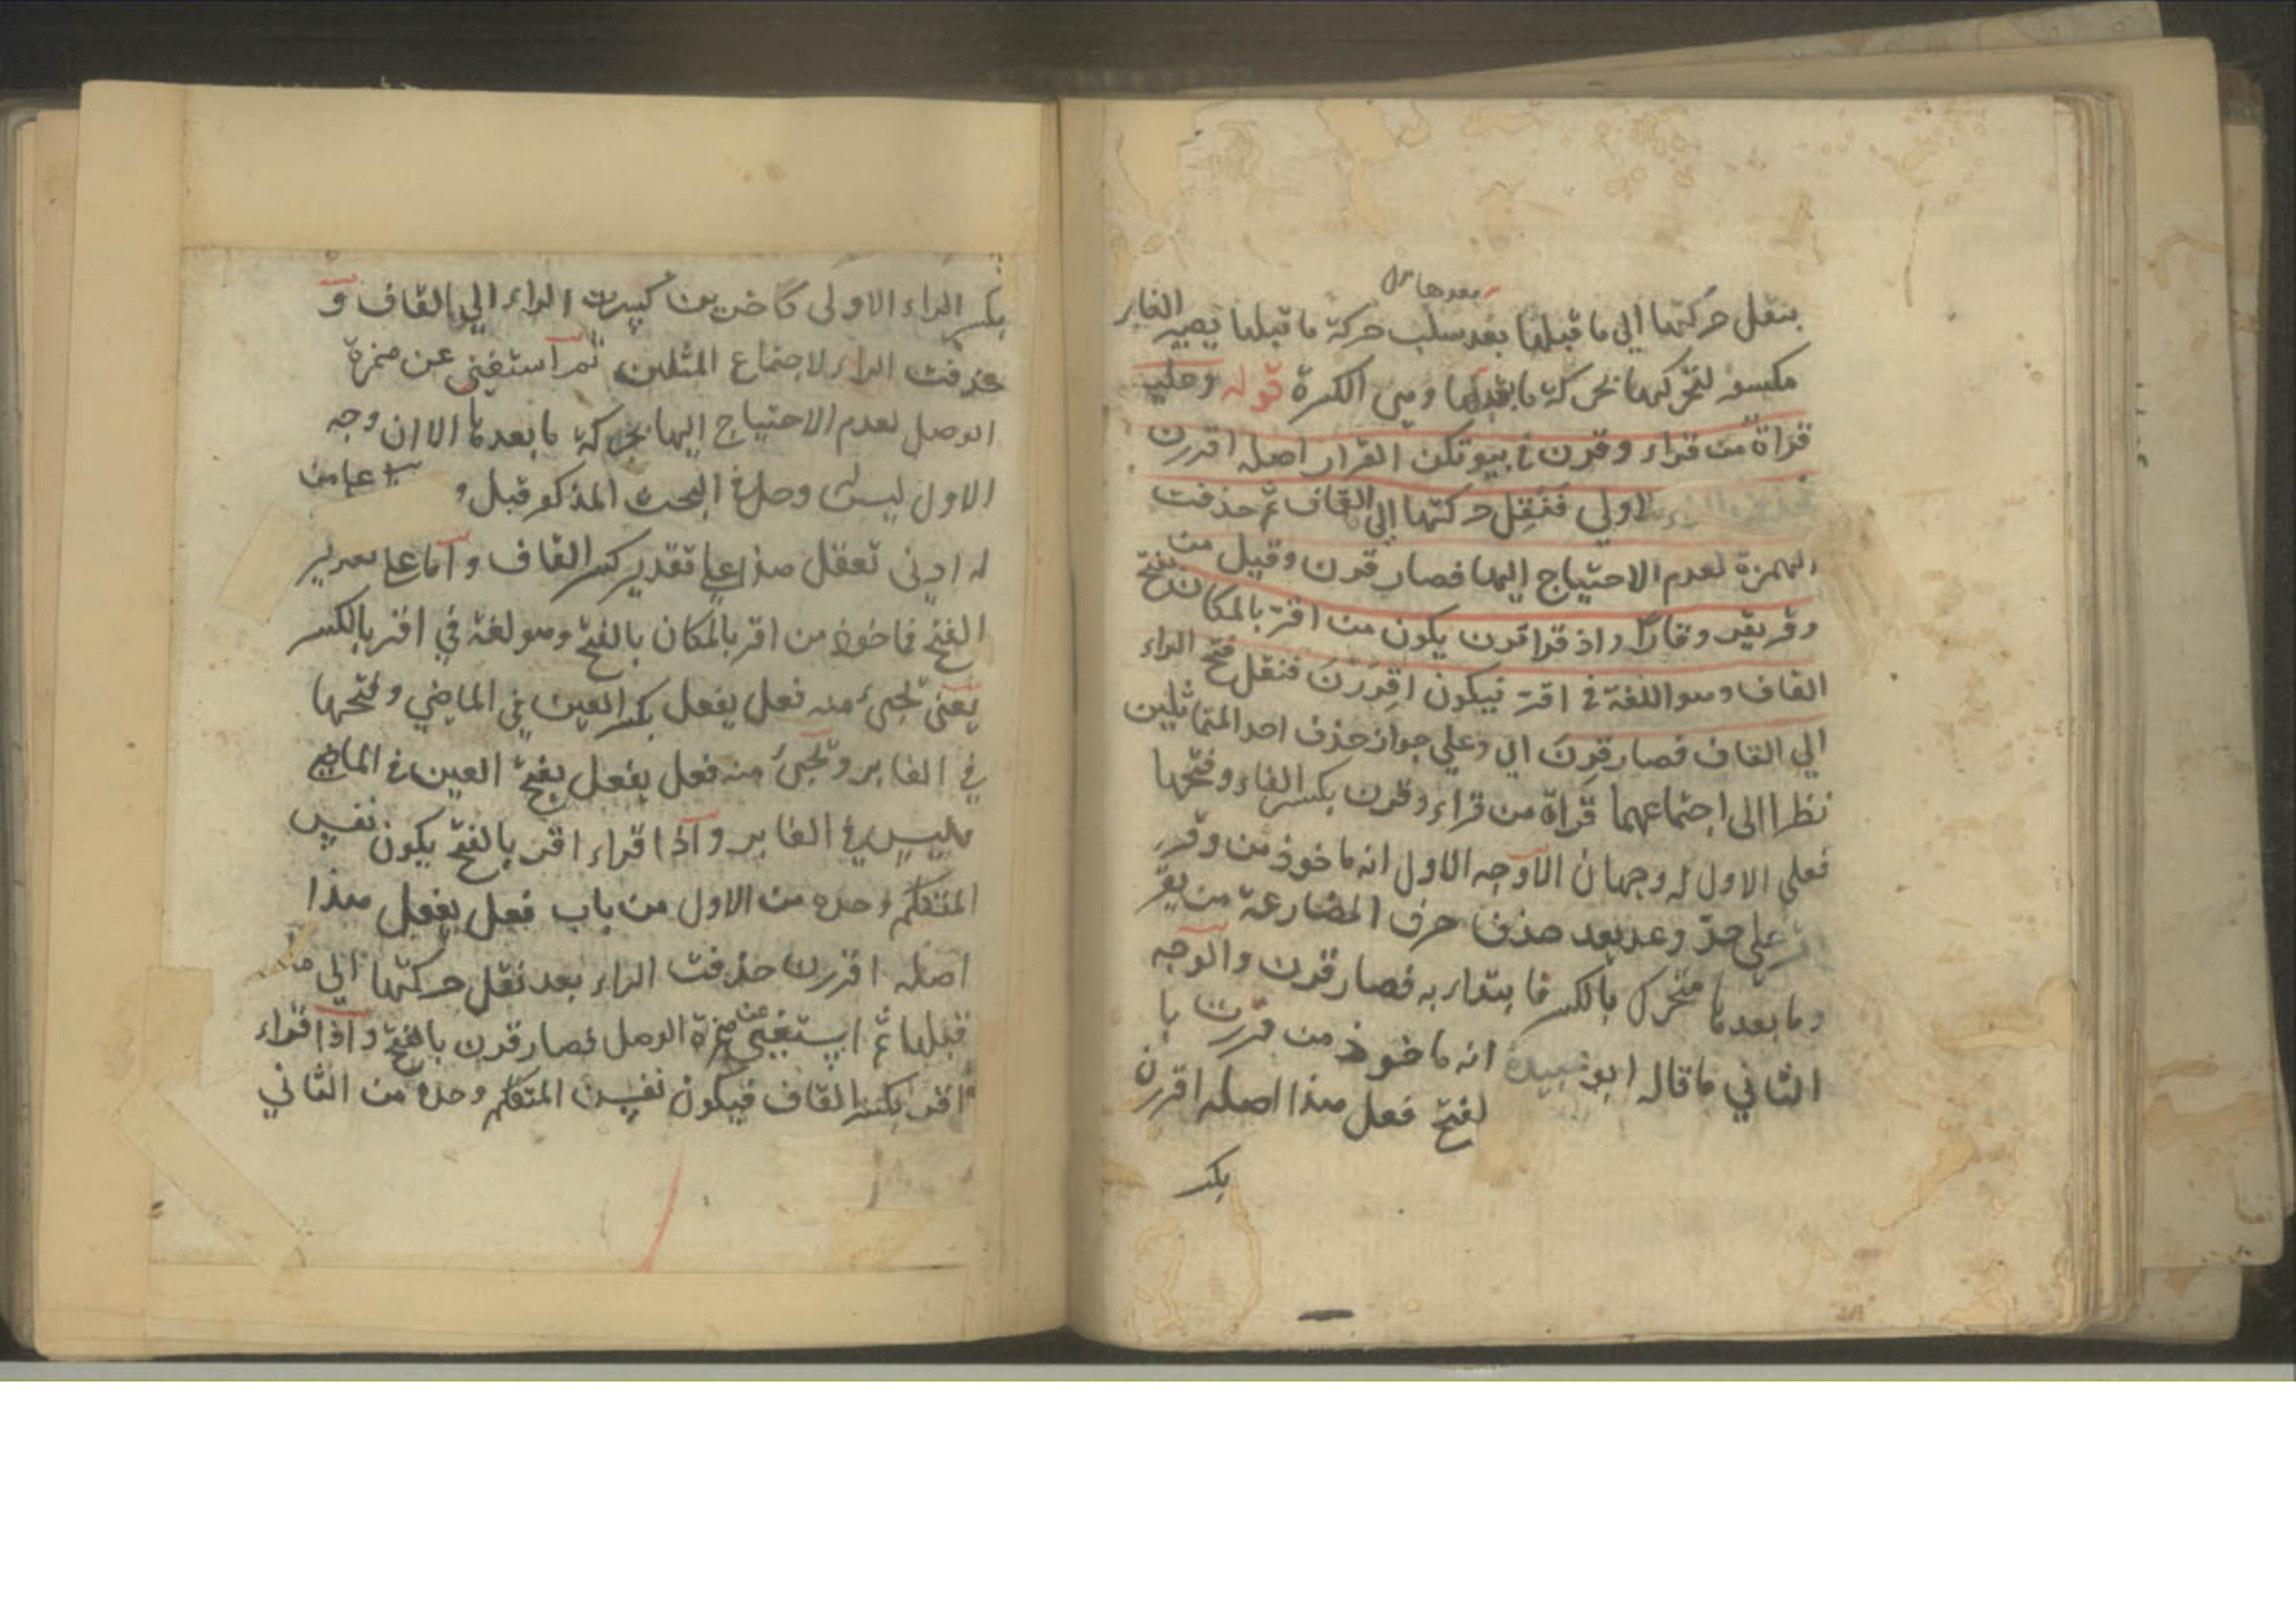 بعدها
بنقل حركتها الي ما قبلها بعد سلب حركة ما قبلها يصير الفاء
مكسورة لتحركها بحركة ما بعدها وهي الكسرة قوله وعليه
قراة من قراء وقرن في بيوتكن القرار اصله اقررن
الاولي فنقل حركتها الي القاف ثم حذفت
الهمزة لعدم الاحتياج اليها فصار قرن وقيل من
وقر يقر وقارا واذ قرا قرن يكون من اقر بالمكان بفتح
القاف وهو اللغة في اقر فيكون اقررن فنقل فتح الراء
الي القاف فصار قرن اي وعلي جواز حذف احد المتماثلين
نظرا الى اجتماعهما قراة من قراء وقرن بكسر الفاء وفتحها
فعلى الاول له وجهان الاوجه الاول انه ماخوذ من وقر
على حد وعد يعد حذف حرف المضارعة من يقر
وما بعدها متحرك بالكسر فابتداء به فصار قرن والوجه
الثاني ما قاله ابو عبيدة انه ماخوذ من قررت با
لفتح فعل هذا اصله اقررن
بكسر
بكسر الراء الاولى كسرت الراء الي القاف و
حذفت الراء لاجتماع المثلين ثم استغنى عن همزة
الوصل لعدم الاحتياج اليها بحركة ما بعدها الا ان وجه
الاول ليس البحث المذكور قبل و من
له ادنى تعقل هذا علي تقدير كسر القاف واما علي تقدير
الفتح فماخوذ من اقر بالمكان بالفتح وهو لغة في اقر بالكسر
يعنى تجئ منه فعل يفعل بكسر العين في الماضي وفتحها
في الغابر وتجئ منه فعل يفعل بفتح العين في الماضي
في الغابر واذا قراء اقر بالفتح يكون نفس
المتكلم وحده من الاول من باب فعل يفعل هذا
اصله اقررن حذفت الراء بعد نقل حركتها الي ما
قبلها ثم استغنى عن همزة الوصل فصار قرن بالفتح واذا قراء
اقر بكسر القاف فيكون نفس المتكلم وحده من الثاني